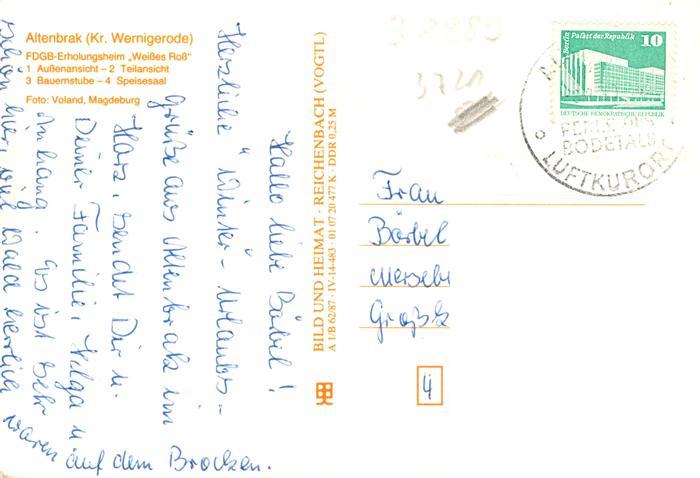 Altenbrak (Kr. Wernigerode)
FDGB-Erholungsheim „Weißes Roß"
1 Außenansicht – 2 Teilansicht
3 Bauernstube – 4 Speisesaal
Foto: Voland, Magdeburg
Hallo liebe Bärbel!
Herzliche "Winter-Urlaubs-
Grüße aus Altenbrak im
Harz, sendet Dir u.
Deiner Familie, Helga u.
Anhang. Es ist sehr
schön hier, viel Wald herrlich
waren auf dem Brocken.
BILD UND HEIMAT · REICHENBACH (VOGTL)
A 1/B 62/87 · IV-14-483 · 01 07 20 477 K · DDR 0,25 M
3721
Berlin Palast der Republik
10
DEUTSCHE DEMOKRATISCHE REPUBLIK
PERLE DES
BODETALS
LUFTKURORT
Frau
Bärbel
4